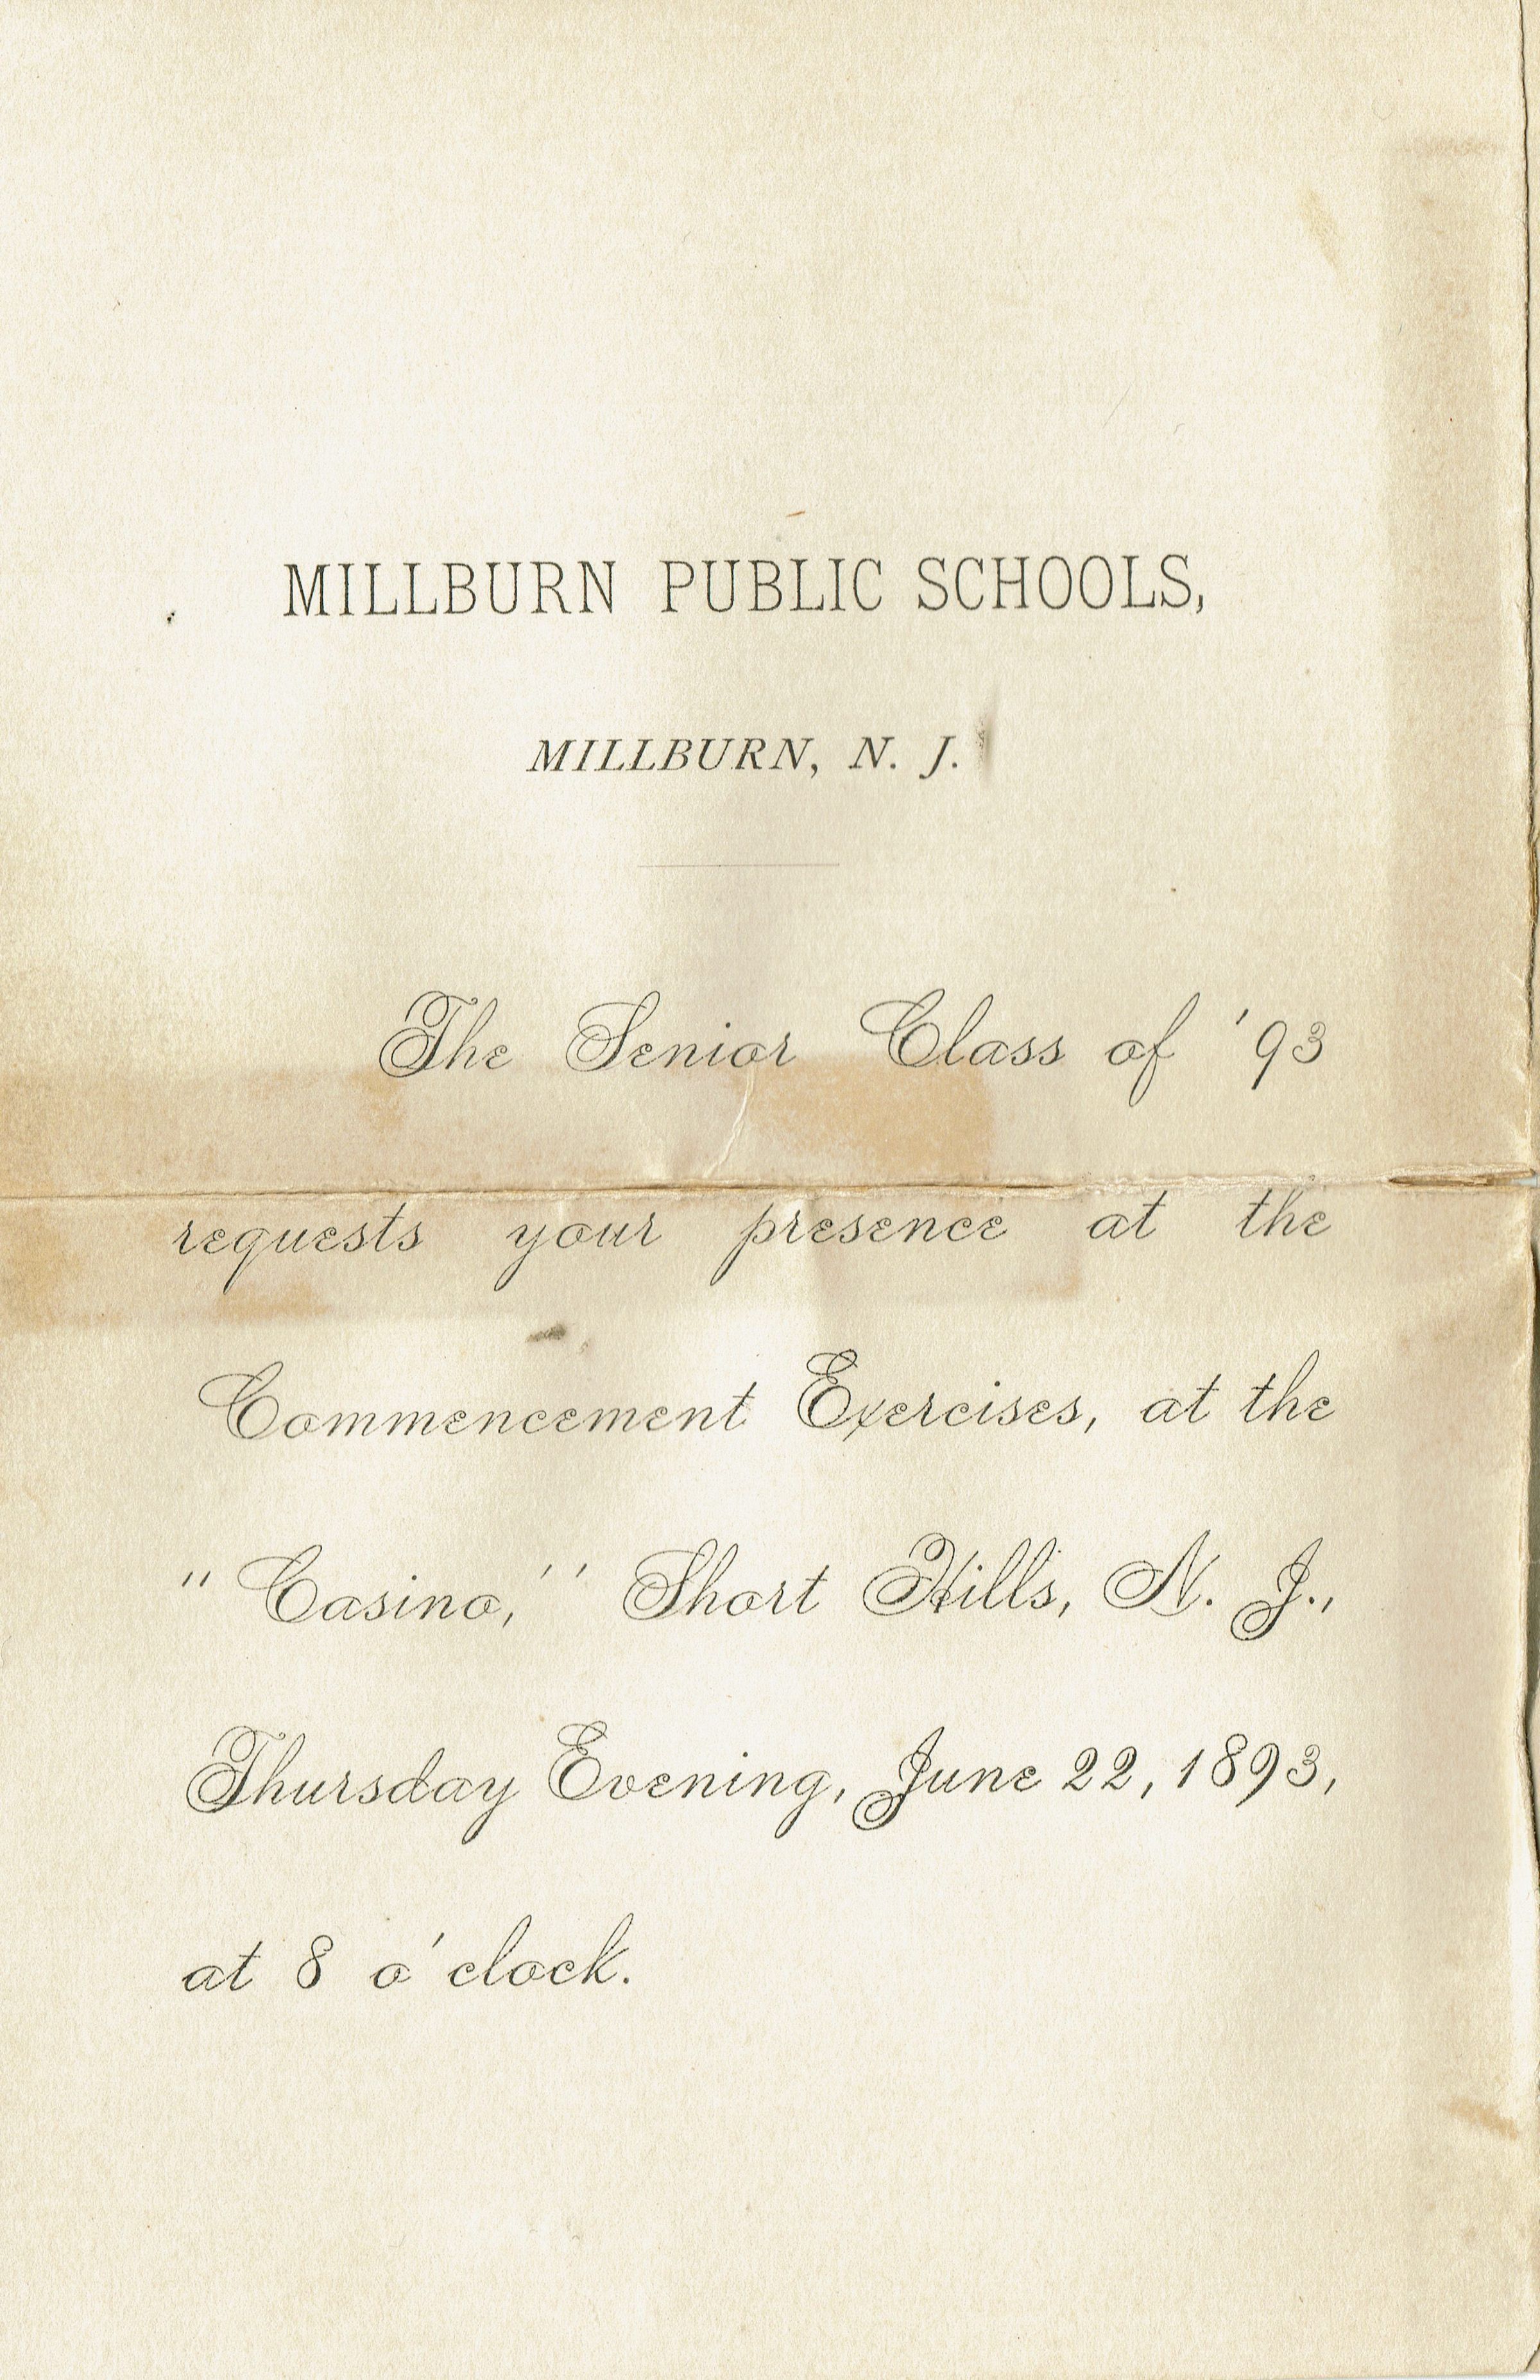 MILLBURN PUBLIC SCHOOLS,
MILLBURN, N. J.
The Senior Class of '93
requests your presence at the
Commencement Exercises, at the
"Casino," Short Hills, N. J.,
Thursday Evening, June 22, 1893,
at 8 o'clock.